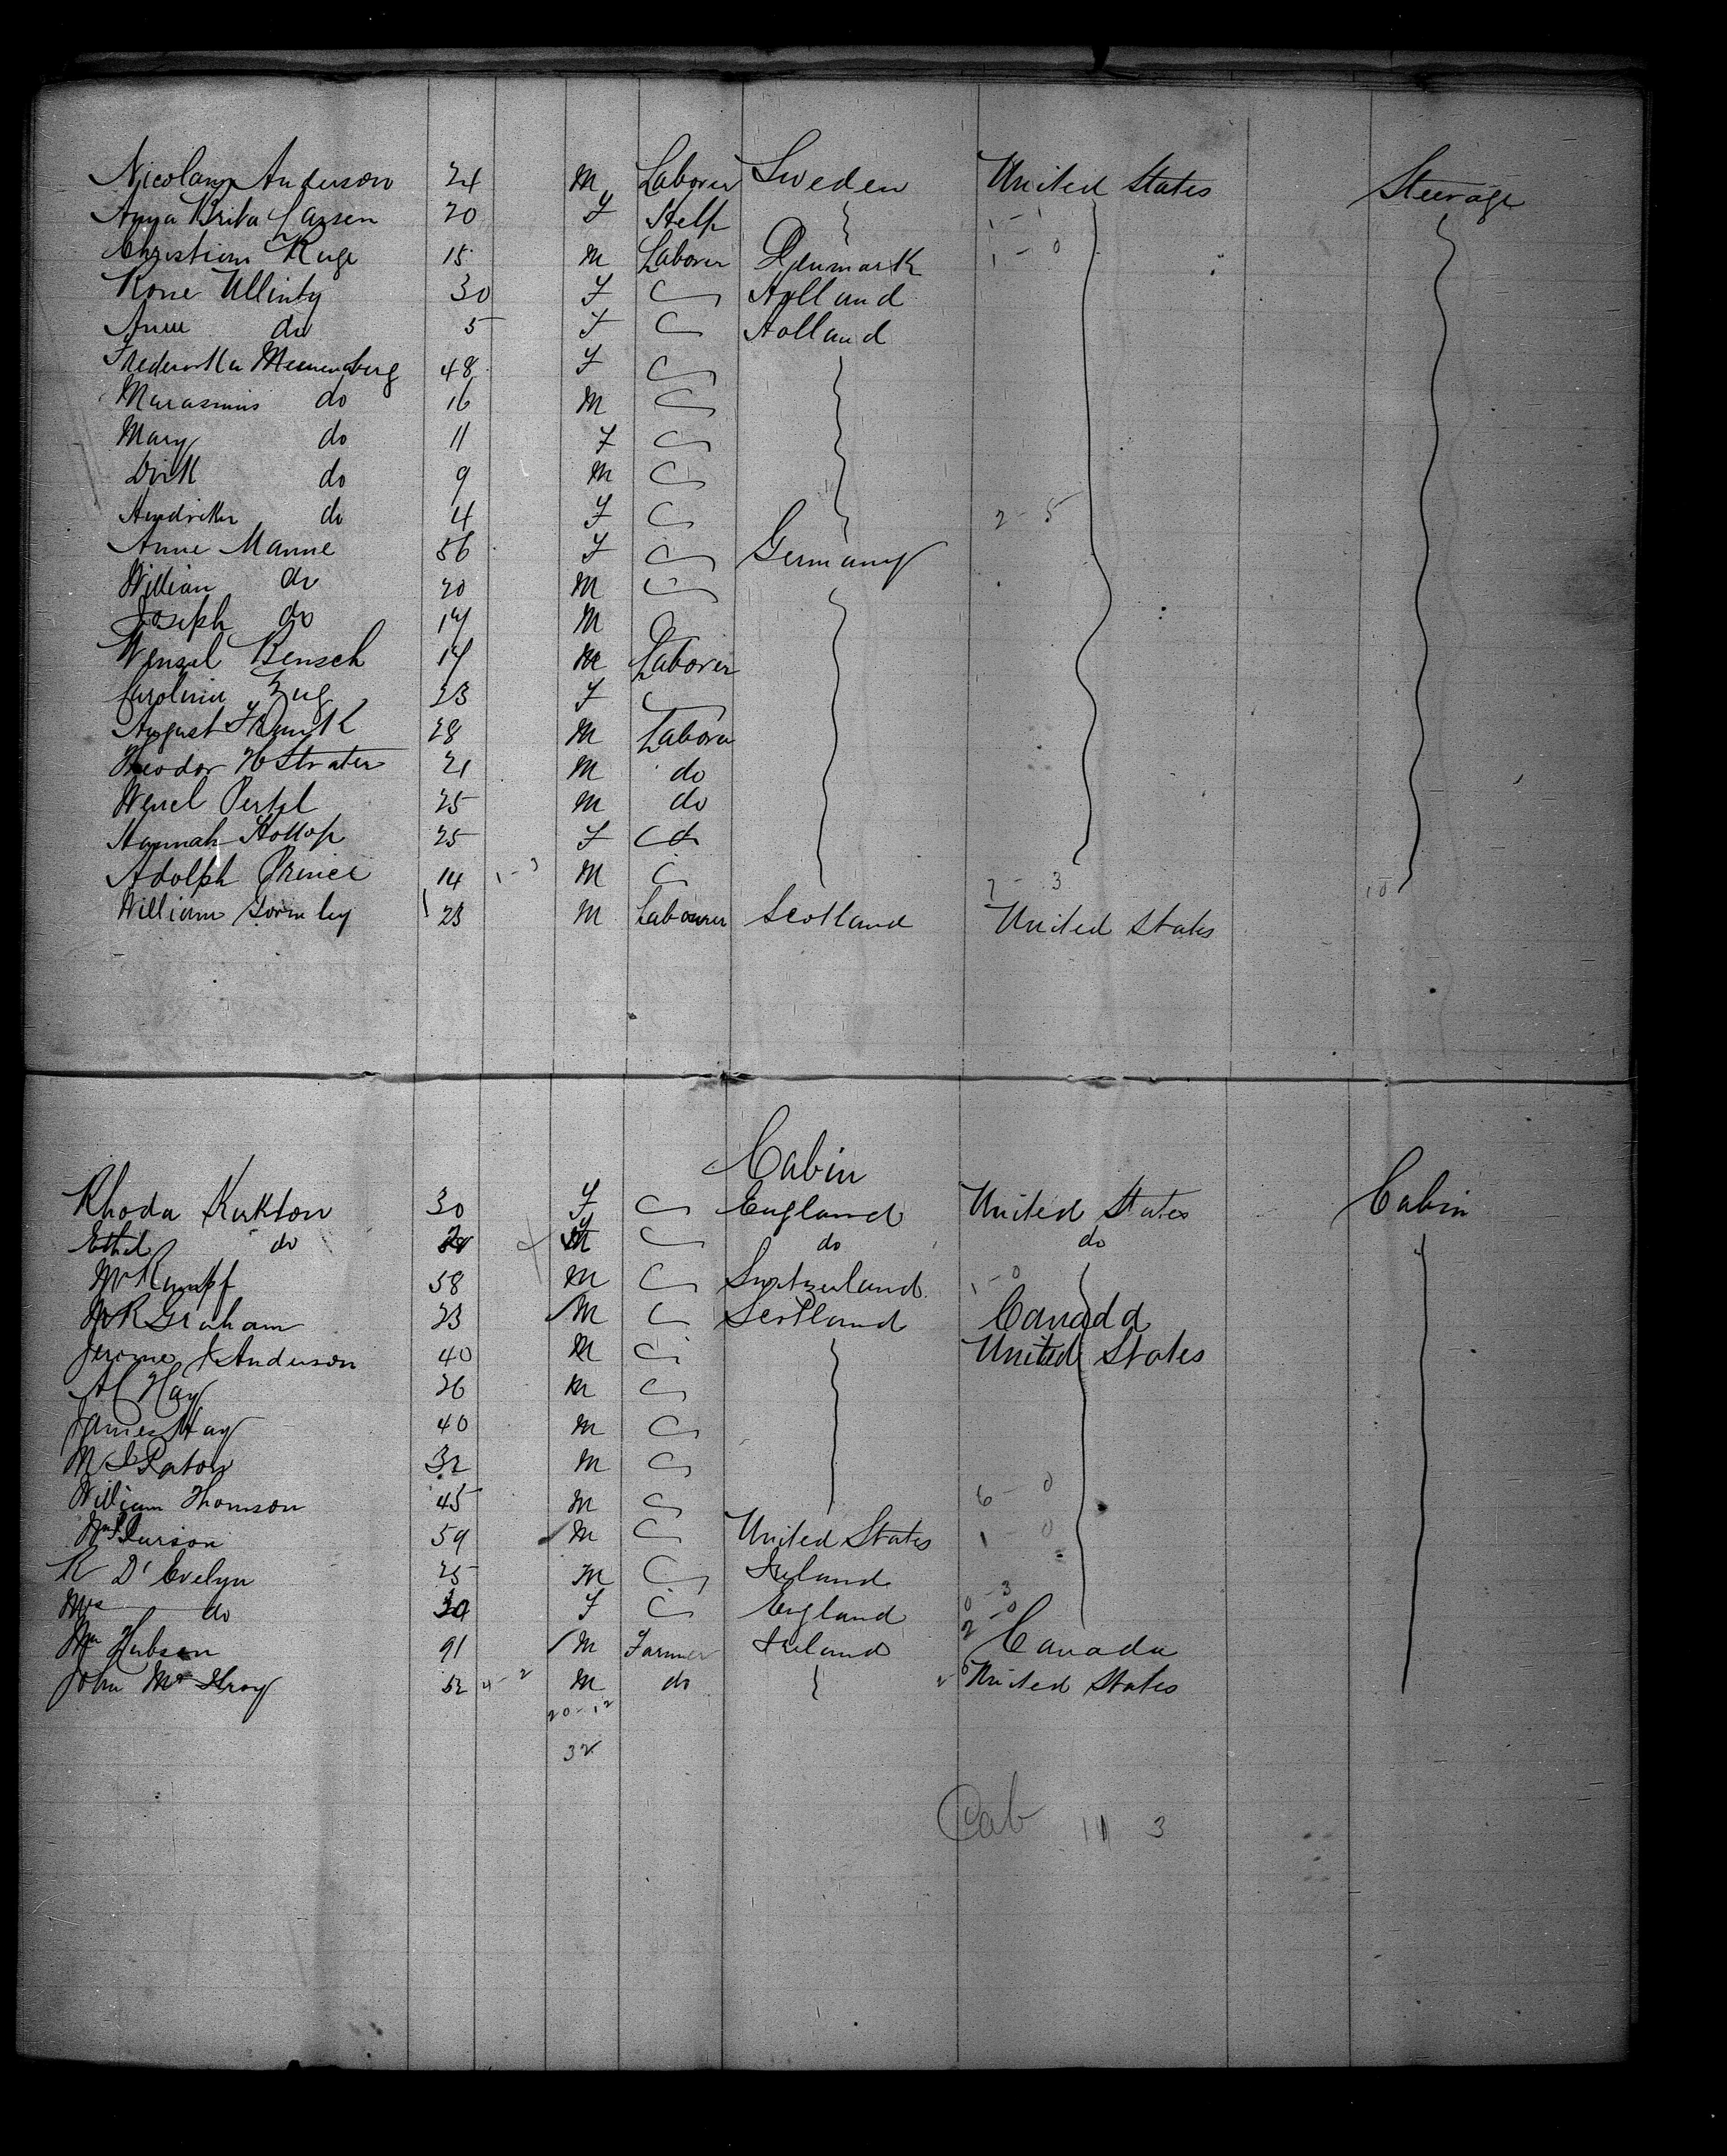 Nicolay Anderson 24 M Laborer Sweden United States Steerage
Anna Brita Larsen 20 F Help 1 - 1
Christian Ruge 15 M Laborer Denmark 1 - 0
Rone Ullinty 30 F Holland
Anne do 5 F Holland
48 F
do 16 M
Mary do 11 F
Dirk do 9 M
Hendrika do 4 F 2 - 5
Anne Manne 56 F Germany
William do 20 M
Joseph do 14 M
Wenzel Bensch 14 M Laborer
Carolina Zug 23 F
August Frank 28 M Labora
Theodor H Strater 21 M do
Wenel Pertzl 25 M do
Hannah Hottop 25 F
Adolph Prince 14 1 - 3 M 7 - 3 10
William Gormley 23 M Labourer Scotland United States
Cabin
Rhoda Kirkton 30 F England United States Cabin
Ethel do do do
Mr Rumpf 58 M Switzerland 1 - 0
Mr R Graham 23 M Scotland Canada
Jerome Anderson 40 M United States
A C Hay 26 M
James Hay 40 M
M Paton 32 M
William Thomson 45 M 6 - 0
59 M United States 1 0
R D' Evelyn 25 M Ireland
Mrs do 30 F England 0 - 3
Wm Hubson 91 M Farmer Ireland 2 - 0 Canada
John 52 4 - 2 M do United States
20 - 12
32
Cab 11 3